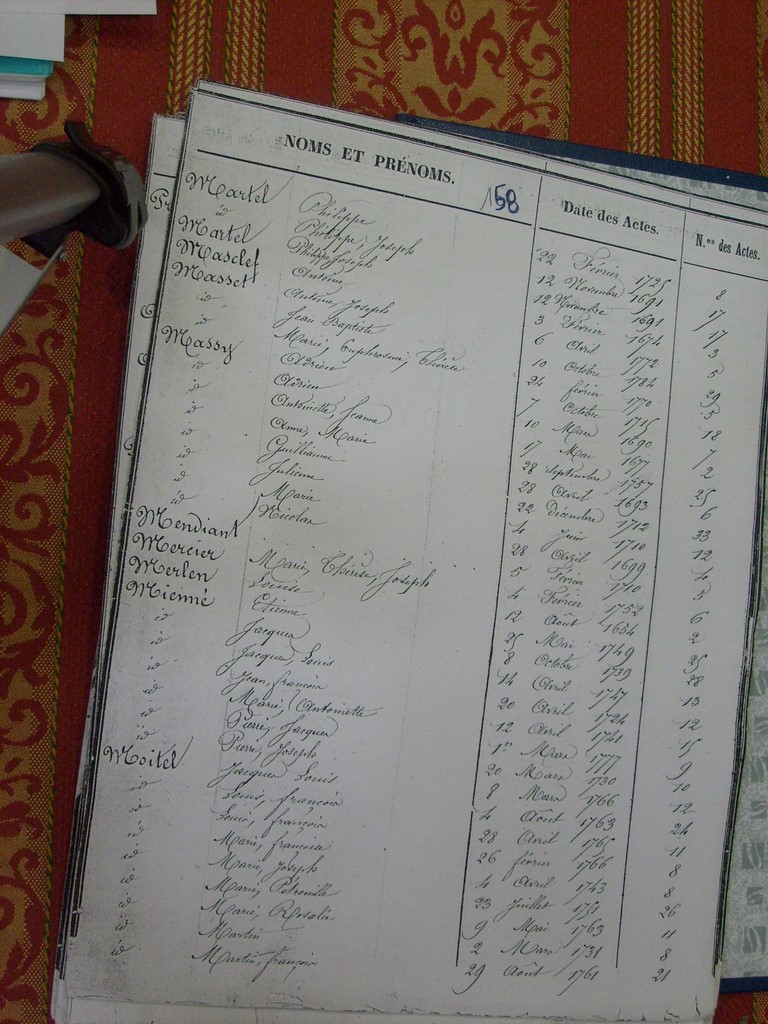 NOMS ET PRÉNOMS. 158 Date des Actes. N.os des Actes.
Martel Philippe 22 Février 1725 8
id Philippe, Joseph 12 Novembre 1691 17
Martel Philippe Joseph 12 Novembre 1691 17
Masclef Antoine 3 Février 1674 3
Masset Antoine, Joseph 6 Avril 1772 5
id Jean Baptiste 10 Octobre 1784 29
id Marie, Euphrosine, Thérèse 24 février 1770 5
Massy Adrien 7 Octobre 1715 18
id Adrien 10 Mars 1690 7
id Antoinette, Jeanne 17 Mai 1677 2
id Anne, Marie 28 septembre 1757 25
id Guillianne 28 Avril 1693 6
id Julienne 22 Décembre 1712 33
id Marie 4 Juin 1710 12
id Nicolas 28 Avril 1699 4
Mendiant 5 Février 1710 3
Mercier Marie, Thérèse, Joseph 4 Février 1752 6
Merlen Louise 12 Août 1664 2
Mienné Etienne 25 Mai 1749 25
id Jacques 8 Octobre 1739 28
id Jacques, Louis 14 Avril 1747 13
id Jean, françois 20 Avril 1724 12
id Marie, Antoinette 12 Avril 1741 15
id Pierre, Jacques 1er Mars 1777 9
id Pierre, Joseph 20 Mars 1730 10
Moitel Jacques Louis 8 Mars 1766 12
id Louis, françois 4 Août 1763 24
id Louis, françois 28 Avril 1765 11
id Marie, françoise 26 février 1766 8
id Marie, Joseph 4 Avril 1743 8
id Marie, Pétronille 23 Juillet 1751 26
id Marie, Rosalie 9 Mai 1763 11
id Martin 2 Mars 1731 8
id Martin, françois 29 Août 1761 21